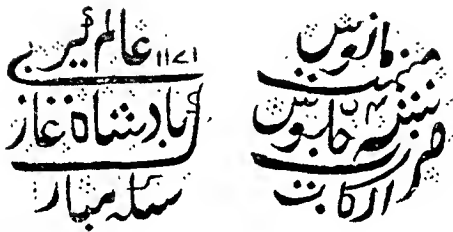 عالمگیر ۱۱۷۱
بادشاه غازی
سکه مبارک
مانوس
میمنت
سنه ۴ جلوس
ضرب ارکات